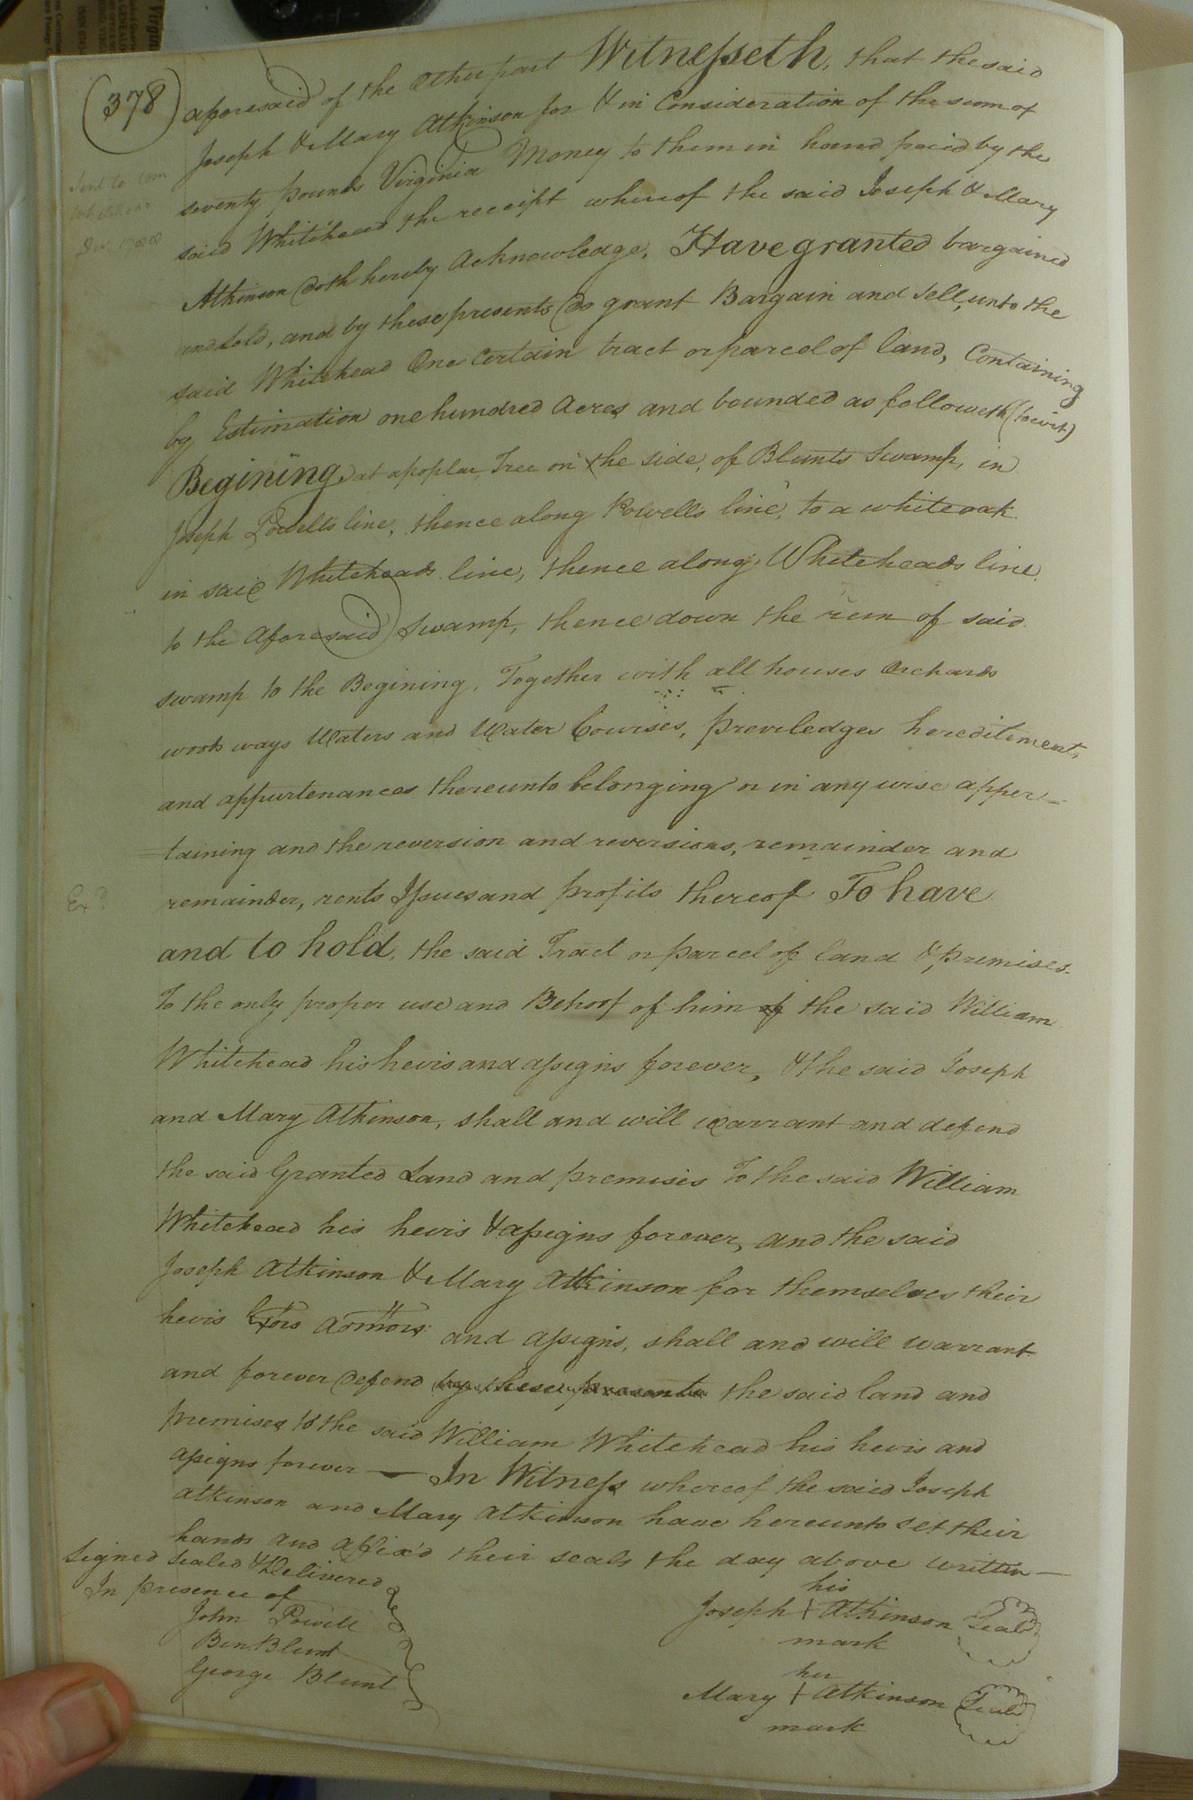 (378)
aforesaid of the Other part Witnesseth, that the said
Joseph & Mary Atkinson for & in Consideration of the sum of
seventy pounds Virginia Money to them in hand paid by the
said Whitehead the receipt whereof the said Joseph & Mary
Atkinson doth hereby Acknowledge. Have granted bargained
and Sold, and by these presents do grant Bargain and Sell, unto the
said Whitehead One Certain tract or parcel of land, Containing
by Estimation one hundred Acres and bounded as followeth (towit)
Begining at a poplar Tree on the side of Blunts Swamp, in
Joseph Powells line, thence along Powells line, to a white oak
in said Whiteheads line, thence along Whiteheads line
to the Aforesaid Swamp, thence down the run of said
swamp to the Begining. Together with all houses Orchards
woods ways Waters and Water Courses, previledges hereditiments,
and appurtenances thereunto belonging or in any wise apper-
-taining and the reversion and reversions, remainder and
remainder, rents Issues and profits thereof To have
and to hold, the said Tract or parcel of land & premises
To the only proper use and Behoof of him of the said William
Whitehead his heirs and assigns forever, & the said Joseph
and Mary Atkinson, shall and will warrant and defend
the said Granted Land and premises To the said William
Whitehead his heirs & assigns forever, and the said
Joseph Atkinson & Mary Atkinson for themselves their
heirs Exors Admors and assigns, shall and will warrant
and forever defend by these presents the said land and
premises to the said William Whitehead his heirs and
assigns forever — In Witness whereof the said Joseph
Atkinson and Mary Atkinson have hereunto set their
hands and affix'd their seals the day above written —
Signed Sealed & Delivered
In presence of
John Powell
Ben Blunt
George Blunt
his
Joseph + Atkinson Seal
mark
her
Mary + Atkinson Seal
mark
Sent to
Whitehead
Exd